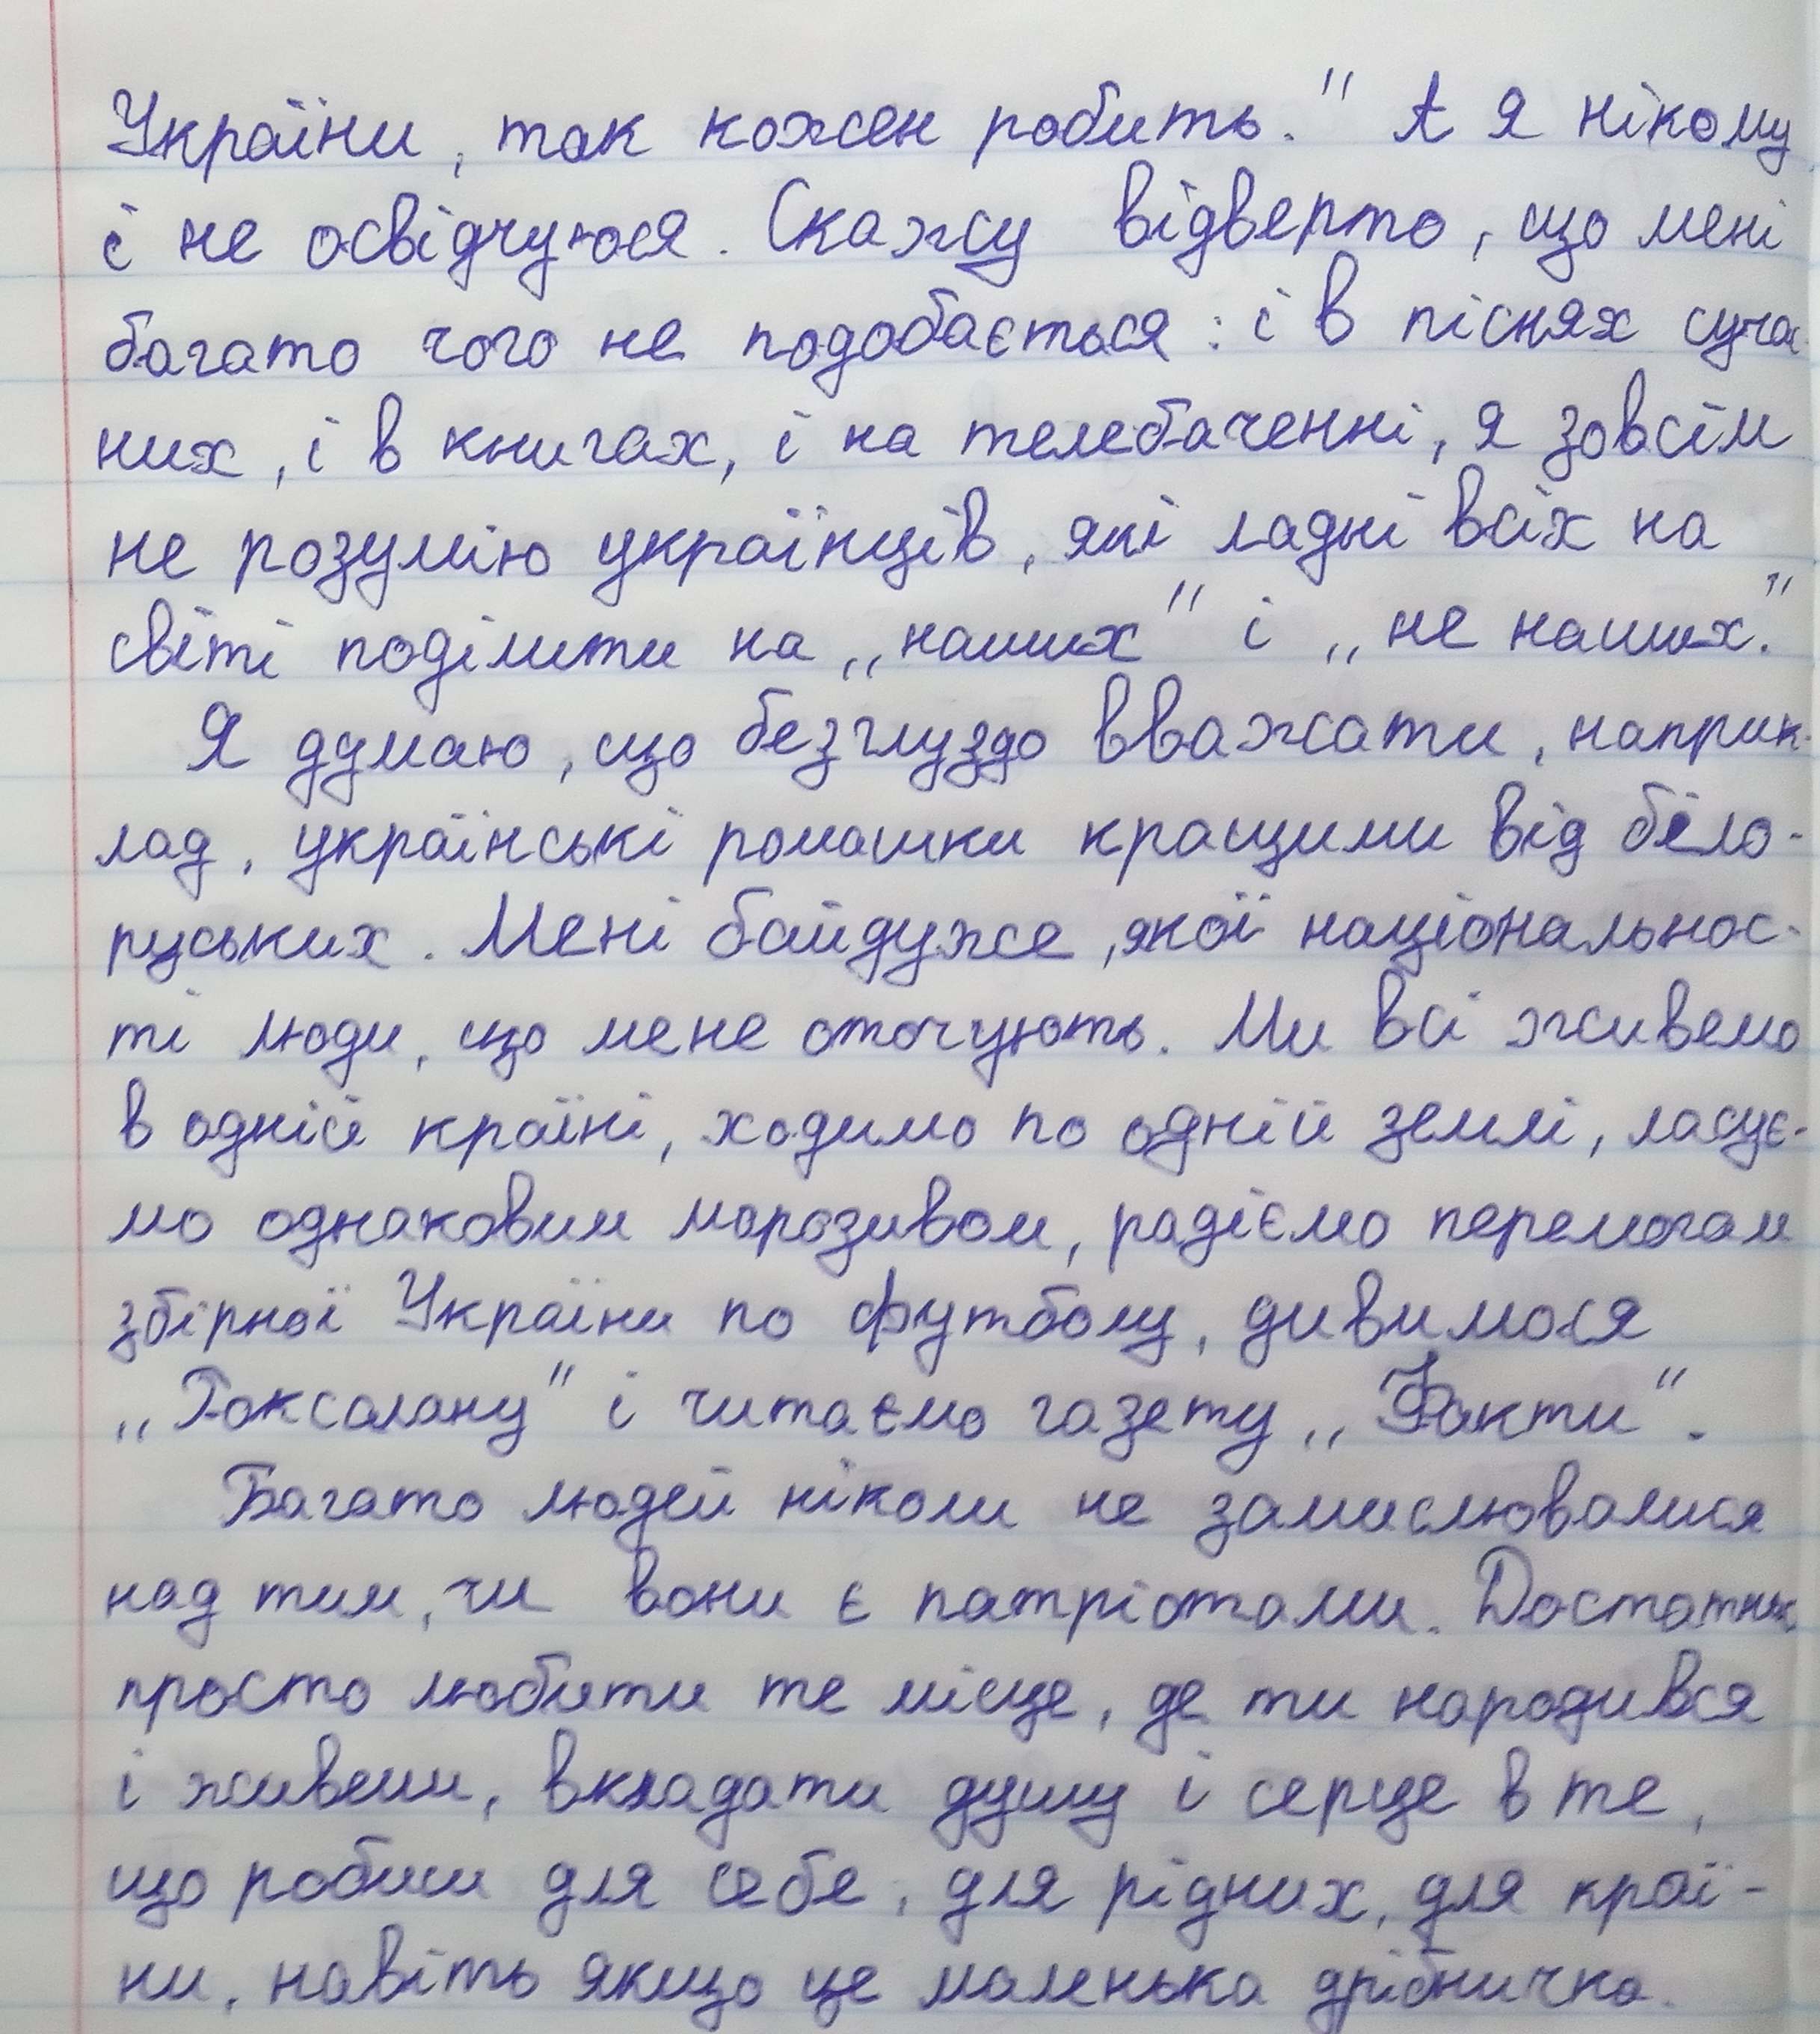 України, так кожен робить." А я нікому
і не освідчуюся. Скажу відверто, що мені
багато чого не подобається: і в піснях суча
них, і в книгах, і на телебаченні, я зовсім
не розумію українців, які ладні всіх на
світі поділити на „наших" і „не наших".
Я думаю, що безглуздо вважати, наприк-
лад, українські ромашки кращими від біло-
руських. Мені байдуже, якої національнос-
ті люди, що мене оточують. Ми всі живемо
в одній країні, ходимо по одній землі, ласує-
мо однаковим морозивом, радіємо перемогам
збірної України по футболу, дивимося
„Роксолану" і читаємо газету „Факти".
Багато людей ніколи не замислювалися
над тим, чи вони є патріотами. Достатньо
просто любити те місце, де ти народився
і живеш, вкладати душу і серце в те,
що робиш для себе, для рідних, для краї-
ни, навіть якщо це маленька дрібничка.